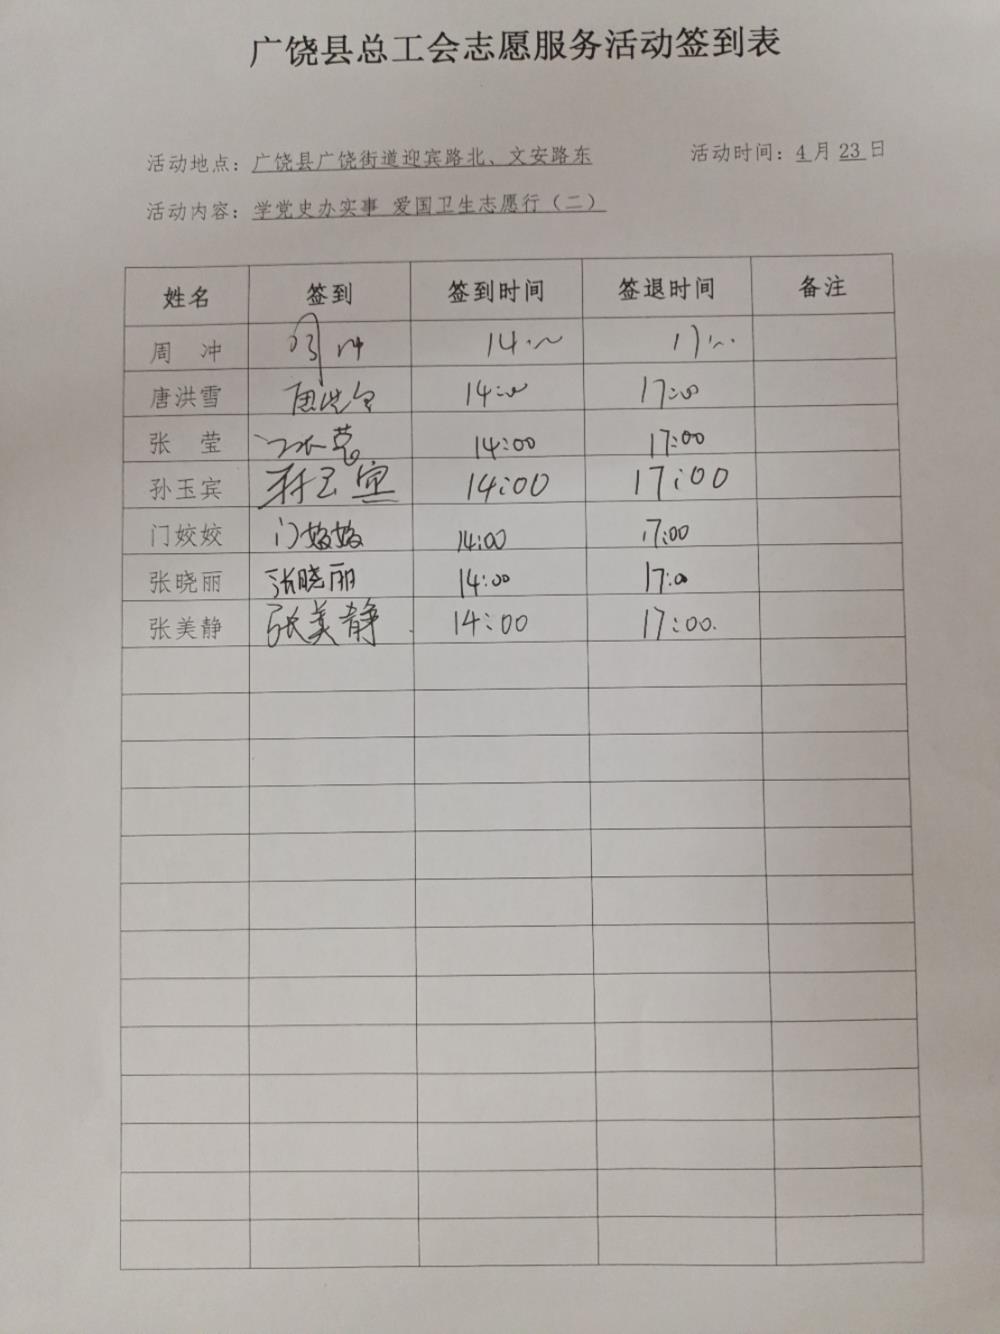 广饶县总工会志愿服务活动签到表
活动地点：广饶县广饶街道迎宾路北、文安路东 活动时间：4月23日
活动内容：学党史办实事 爱国卫生志愿行（二）
姓名 签到 签到时间 签退时间 备注
周 冲 周冲 14:00 17:00
唐洪雪 唐洪雪 14:00 17:00
张 莹 张莹 14:00 17:00
孙玉宾 孙玉宾 14:00 17:00
门姣姣 门姣姣 14:00 17:00
张晓丽 张晓丽 14:00 17:00
张美静 张美静 14:00 17:00.